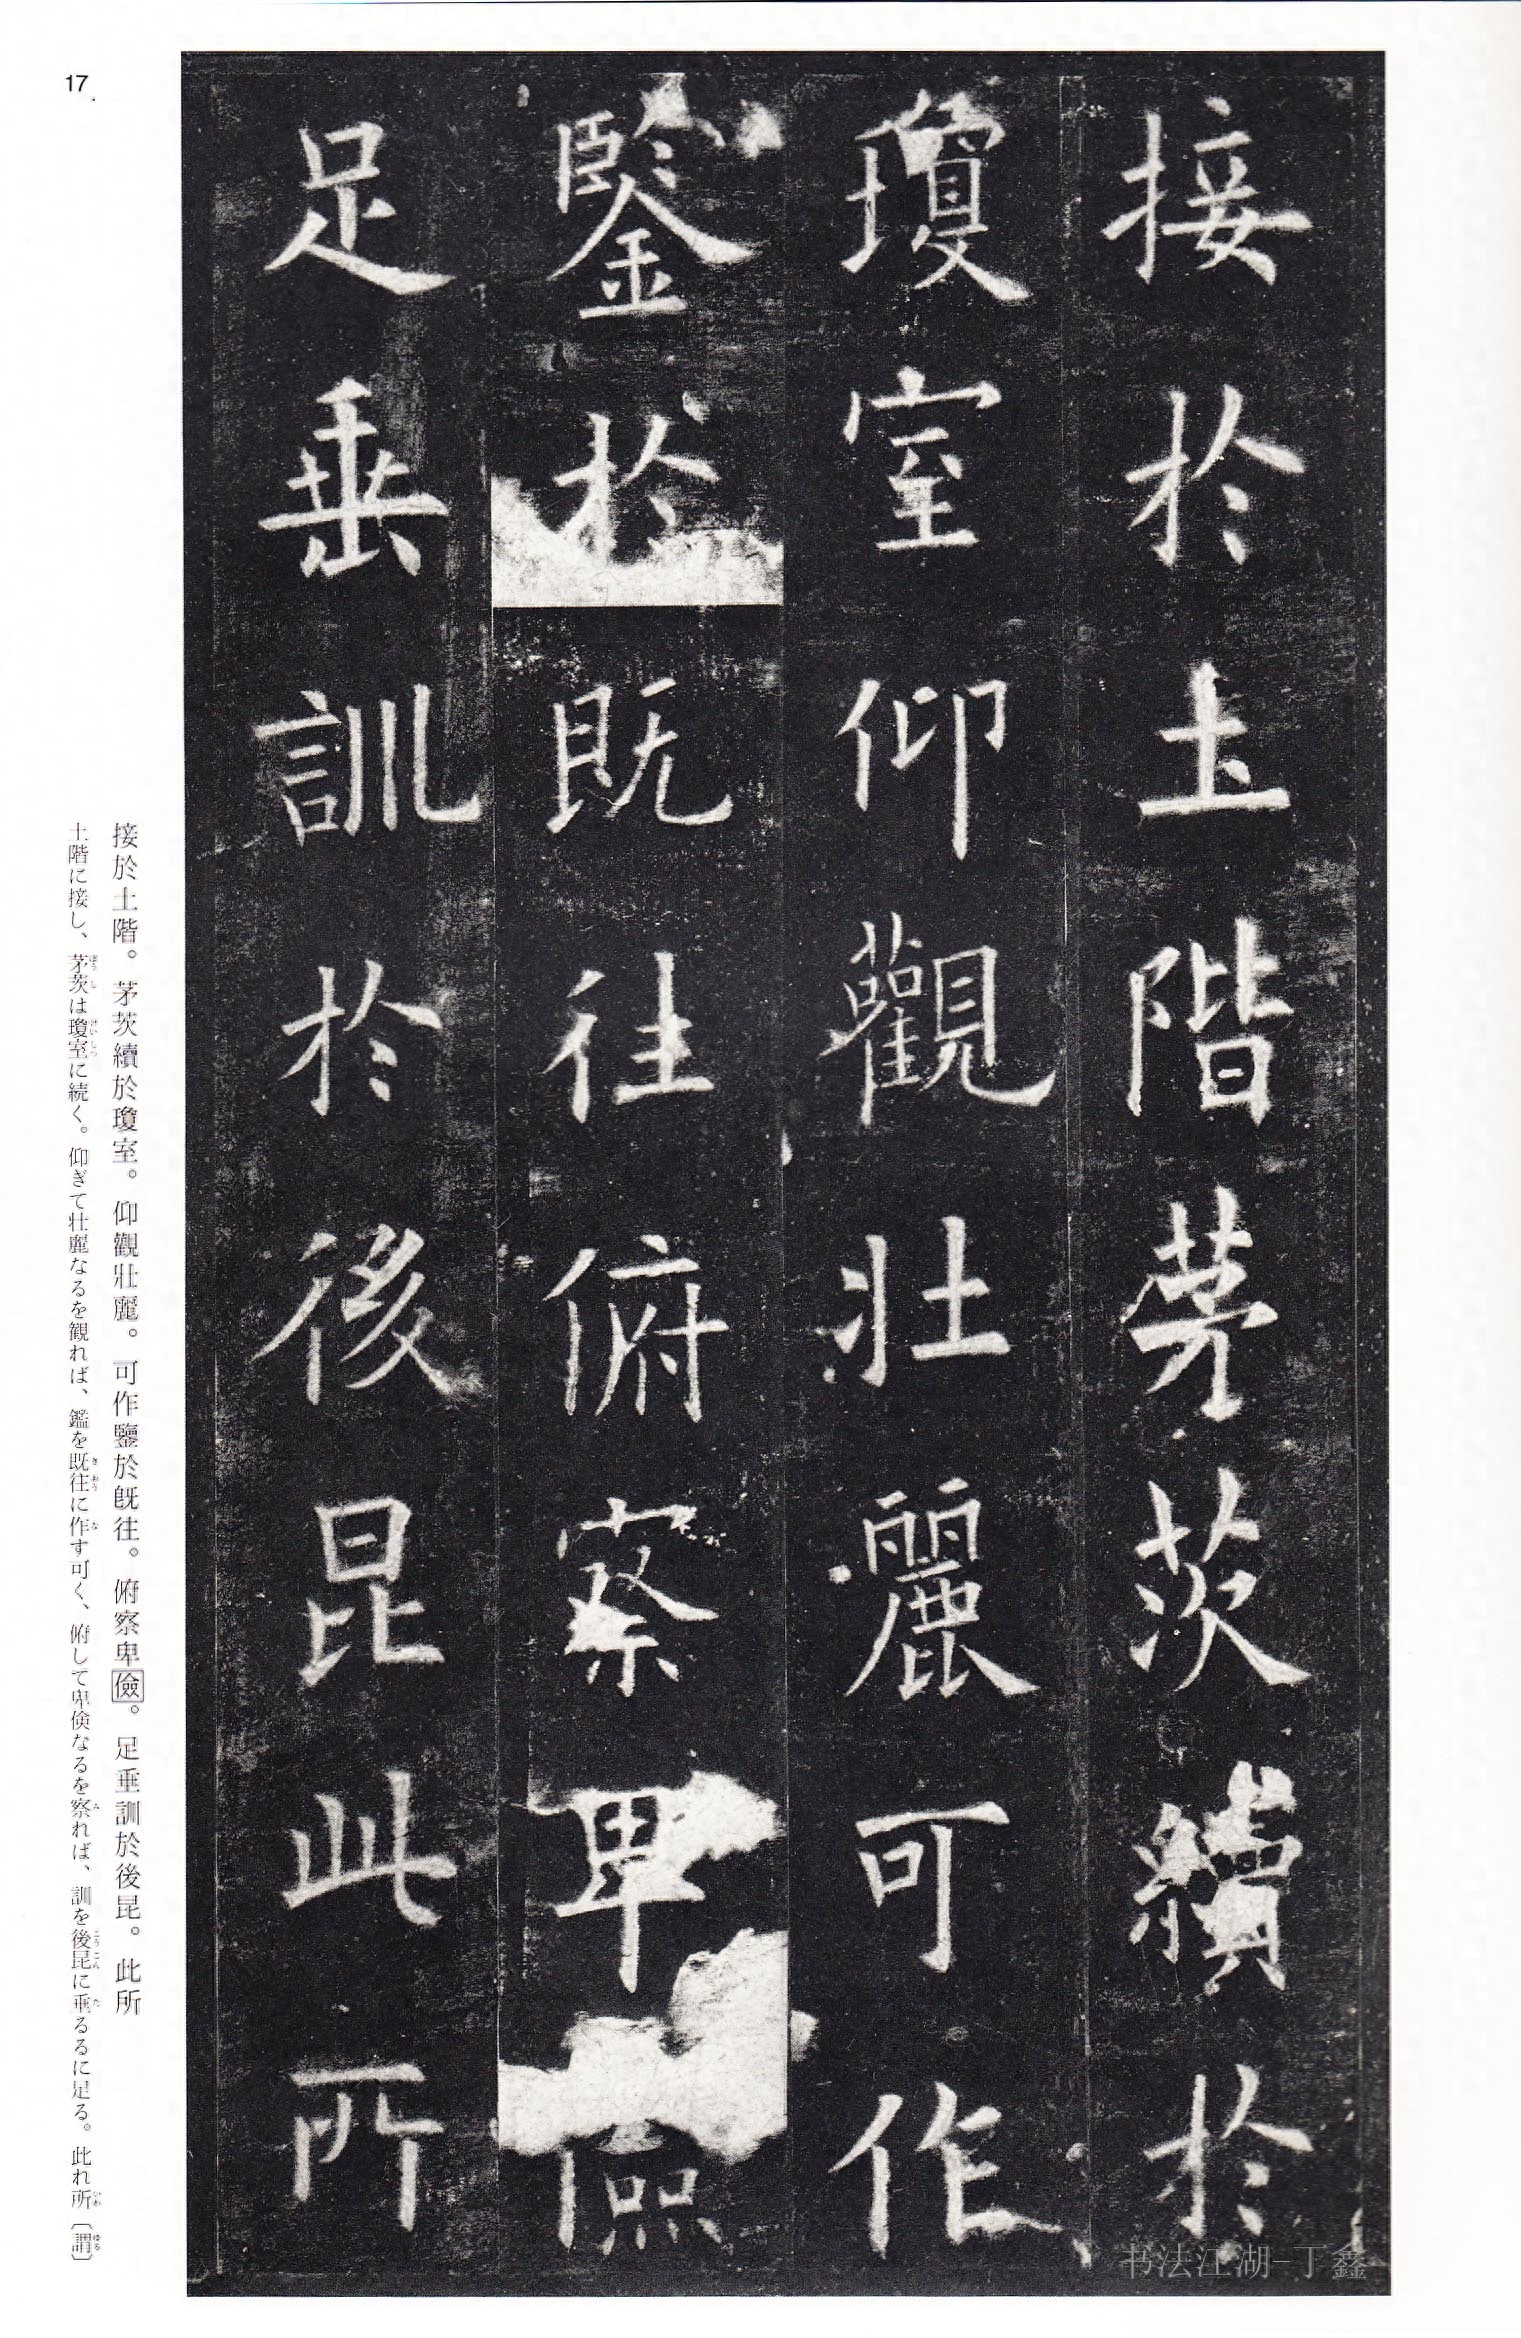 接於土階茅茨續於
瓊室仰觀壯麗可作
鑒於既往俯察卑儉
足垂訓於後昆此所
接於土階。茅茨續於瓊室。仰觀壯麗。可作鑒於既往。俯察卑儉。足垂訓於後昆。此所
土階に接し、茅茨は瓊室に続く。仰ぎて壮麗なるを観れば、鑑を既往に作す可く、俯して卑倹なるを察れば、訓を後昆に垂るるに足る。此れ所〔謂〕
17
书法江湖-丁鑫